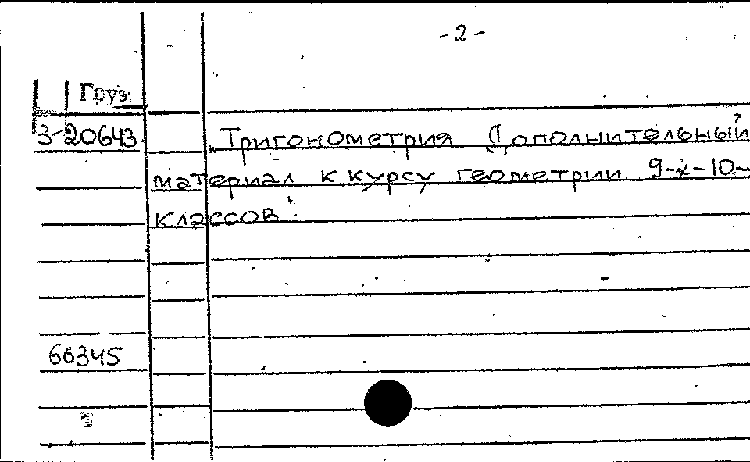 -2-
Груз
3-20643
Тригонометрия Дополнительный
материал к курсу геометрии 9-х-10-
классов.
66345